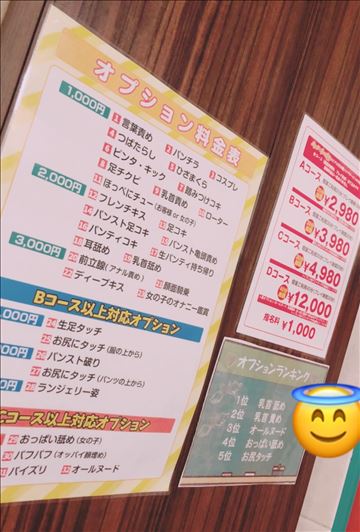 オプション料金表
1,000円
1 言葉責め 2 パンチラ 3 コスプレ
4 つばたらし 5 ひざまくら
6 ビンタ・キック 7 踏みつけコキ
8 足チクビ 9 乳首責め 10 ローター
11 ほっぺにチュー(お客様 or 女の子)
2,000円
12 フレンチキス 13 足コキ
14 パンスト足コキ 15 パンスト亀頭責め
16 パンティコキ 17 生パンティ持ち帰り
3,000円
18 耳舐め 19 乳首舐め
20 前立腺(アナル責め) 21 顔面騎乗
22 ディープキス 23 女の子のオナニー鑑賞
Bコース以上対応オプション
,000円
24 生足タッチ
25 お尻にタッチ(服の上から)
000円
26 パンスト破り
27 お尻にタッチ(パンツの上から)
円
28 ランジェリー姿
コース以上対応オプション
29 おっぱい舐め(女の子)
30 パフパフ(オッパイ顔埋め)
31 パイズリ 32 オールヌード
Aコース
¥2,980
Bコース
¥3,980
Cコース
¥4,980
Dコース
¥12,000
指名料 ¥1,000
オプションランキング
1位 乳首 舐め
2位 乳首 責め
3位 オールヌード
4位 おっぱい舐め
5位 お尻タッチ